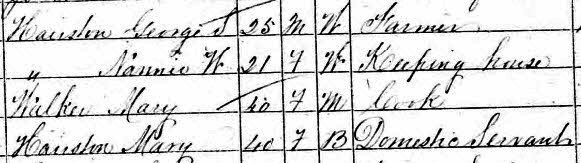 Hairston George S 25 M W Farmer
" Nannie W 21 F W Keeping house
Walker Mary 40 F M Cook
Hairston Mary 40 F B Domestic Servant